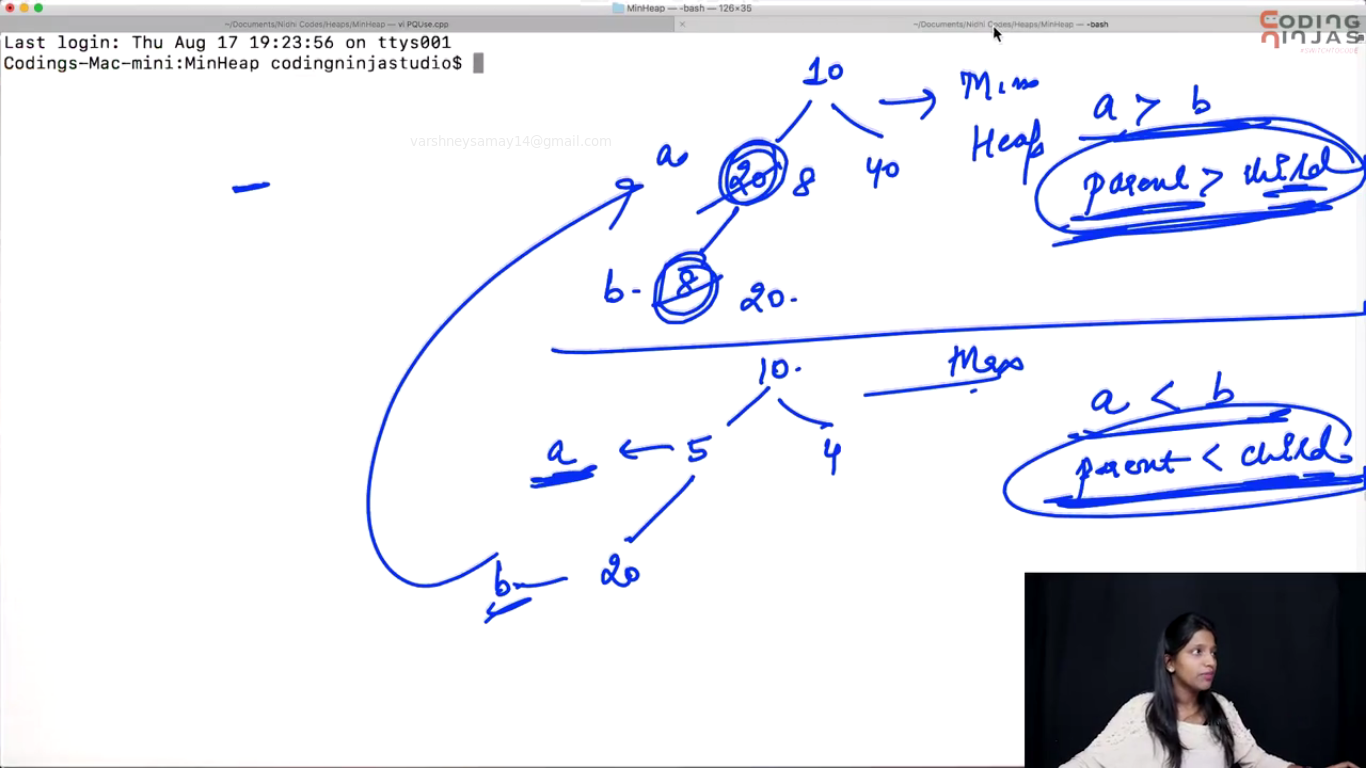 MinHeap — -bash — 126×35
~/Documents/Nidhi Codes/Heaps/MinHeap — vi PQUse.cpp
~/Documents/Nidhi Codes/Heaps/MinHeap — -bash
CODING
NINJAS
#SWITCHTOCODE
Last login: Thu Aug 17 19:23:56 on ttys001
Codings-Mac-mini:MinHeap codingninjastudio$
varshneysamay14@gmail.com
10
Min
Heap
a > b
a
20 8
40
parent > child
b - 8
20.
10.
Max
a < b
a ← 5
4
parent < child
b — 20